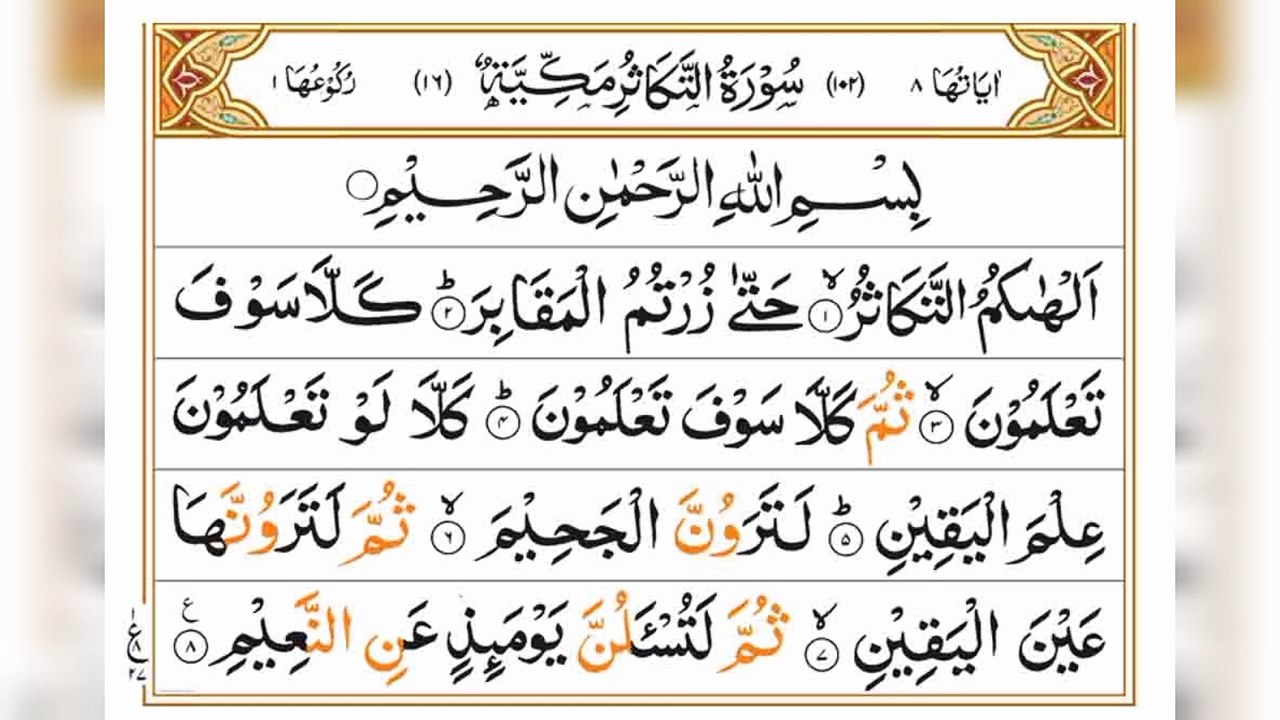 اٰيَاتُهَا ٨ (١٠٢) سُوْرَةُ التَّكَاثُرِ مَكِّيَّةٌ (١٦) رُكُوْعُهَا ١
بِسْمِ اللّٰهِ الرَّحْمٰنِ الرَّحِيْمِ ۝
اَلْهٰىكُمُ التَّكَاثُرُ ۙ‏﴿١﴾ حَتّٰى زُرْتُمُ الْمَقَابِرَ ؕ‏﴿٢﴾ كَلَّا سَوْفَ
تَعْلَمُوْنَ ۙ‏﴿٣﴾ ثُمَّ كَلَّا سَوْفَ تَعْلَمُوْنَ ؕ‏﴿٤﴾ كَلَّا لَوْ تَعْلَمُوْنَ
عِلْمَ الْيَقِيْنِ ؕ‏﴿٥﴾ لَتَرَوُنَّ الْجَحِيْمَ ۙ‏﴿٦﴾ ثُمَّ لَتَرَوُنَّهَا
عَيْنَ الْيَقِيْنِ ۙ‏﴿٧﴾ ثُمَّ لَتُسْـَٔلُنَّ يَوْمَٮِٕذٍ عَنِ النَّعِيْمِ ‏﴿٨﴾ ع
ع ٨ ٢٧